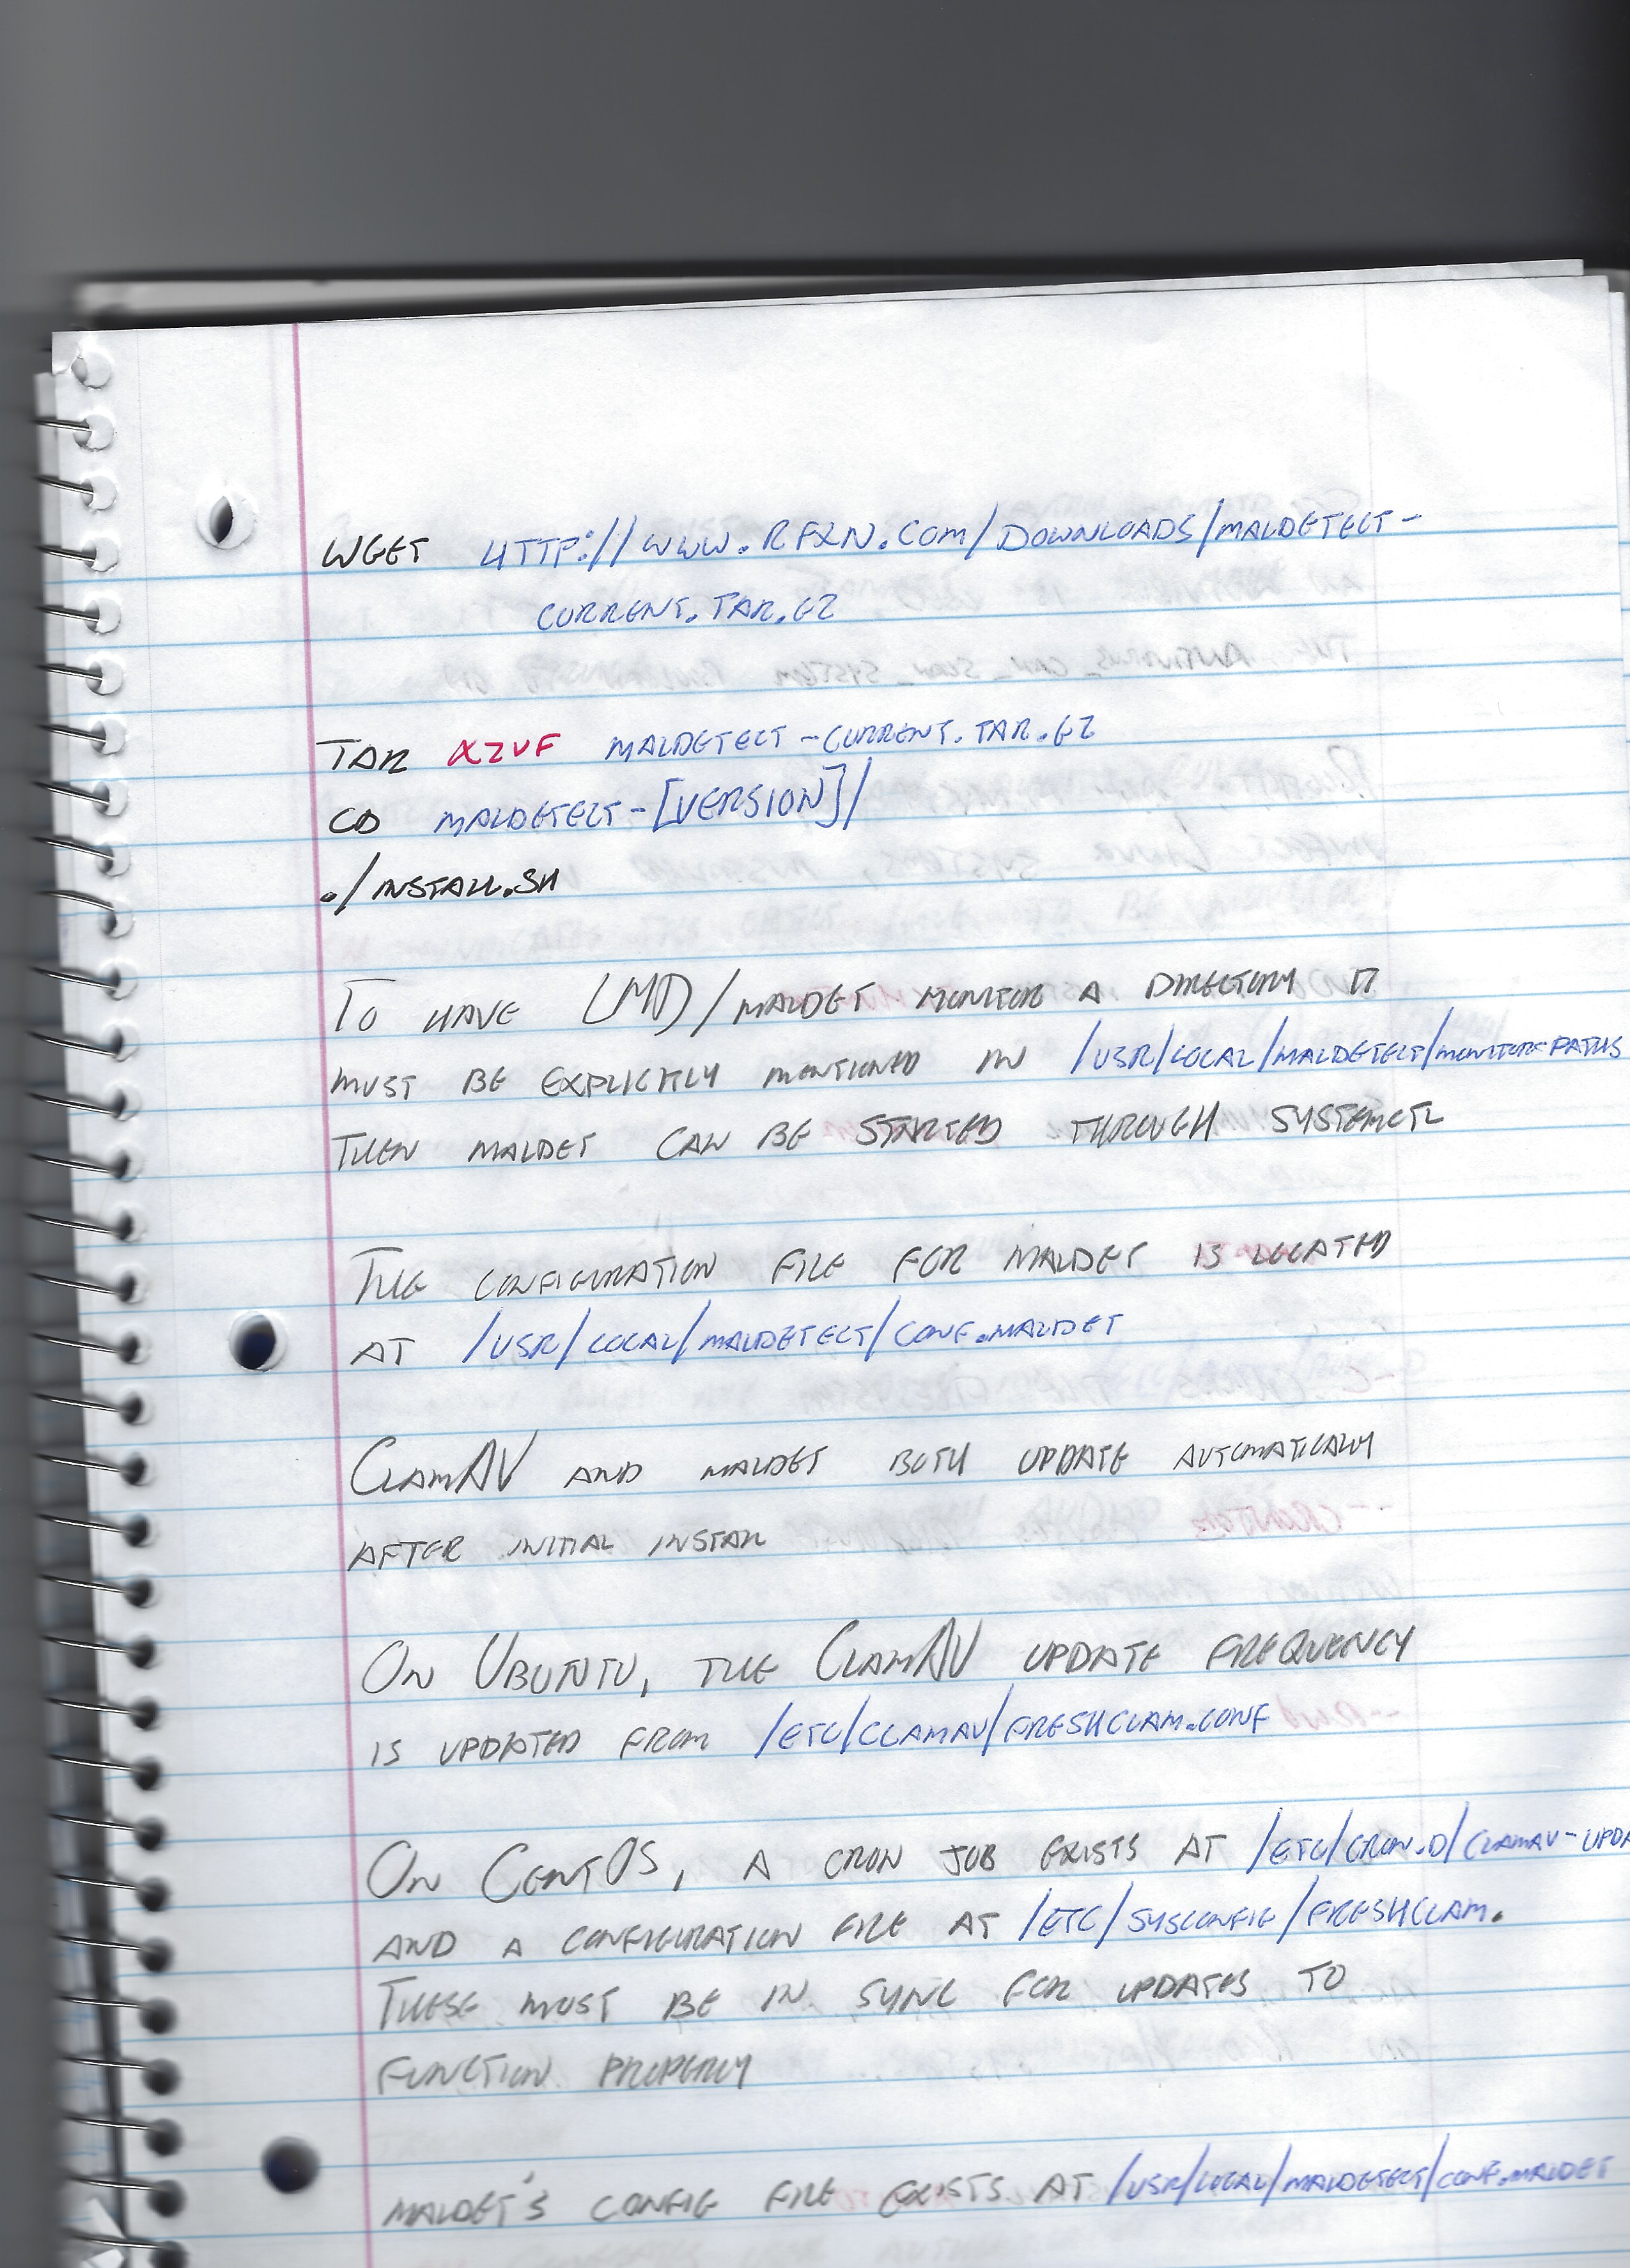 WGET HTTP://WWW.RFXN.COM/DOWNLOADS/MALDETECT-
CURRENT.TAR.GZ
TAR XZVF MALDETECT-CURRENT.TAR.GZ
CD MALDETECT-[VERSION]/
./INSTALL.SH
TO HAVE LMD/MALDET MONITOR A DIRECTORY IT
MUST BE EXPLICITLY MENTIONED IN /USR/LOCAL/MALDETECT/MONITOR-PATHS
THEN MALDET CAN BE STARTED THROUGH SYSTEMCTL
THE CONFIGURATION FILE FOR MALDET IS LOCATED
AT /USR/LOCAL/MALDETECT/CONF.MALDET
CLAMAV AND MALDET BOTH UPDATE AUTOMATICALLY
AFTER INITIAL INSTALL
ON UBUNTU, THE CLAMAV UPDATE FREQUENCY
IS UPDATED FROM /ETC/CLAMAV/FRESHCLAM.CONF
ON CENTOS, A CRON JOB EXISTS AT /ETC/CRON.D/CLAMAV-UPDA
AND A CONFIGURATION FILE AT /ETC/SYSCONFIG/FRESHCLAM.
THESE MUST BE IN SYNC FOR UPDATES TO
FUNCTION PROPERLY
MALDET'S CONFIG FILE EXISTS AT /USR/LOCAL/MALDETECT/CONF.MALDET